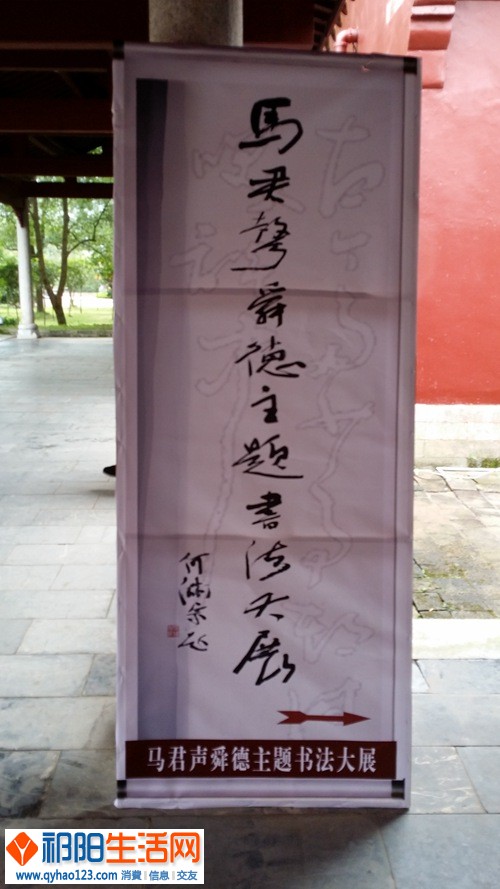 馬君聲舜德主題書法大展
何满宗题
马君声舜德主题书法大展
祁阳生活网
www.qyhao123.com 消費 | 信息 | 交友